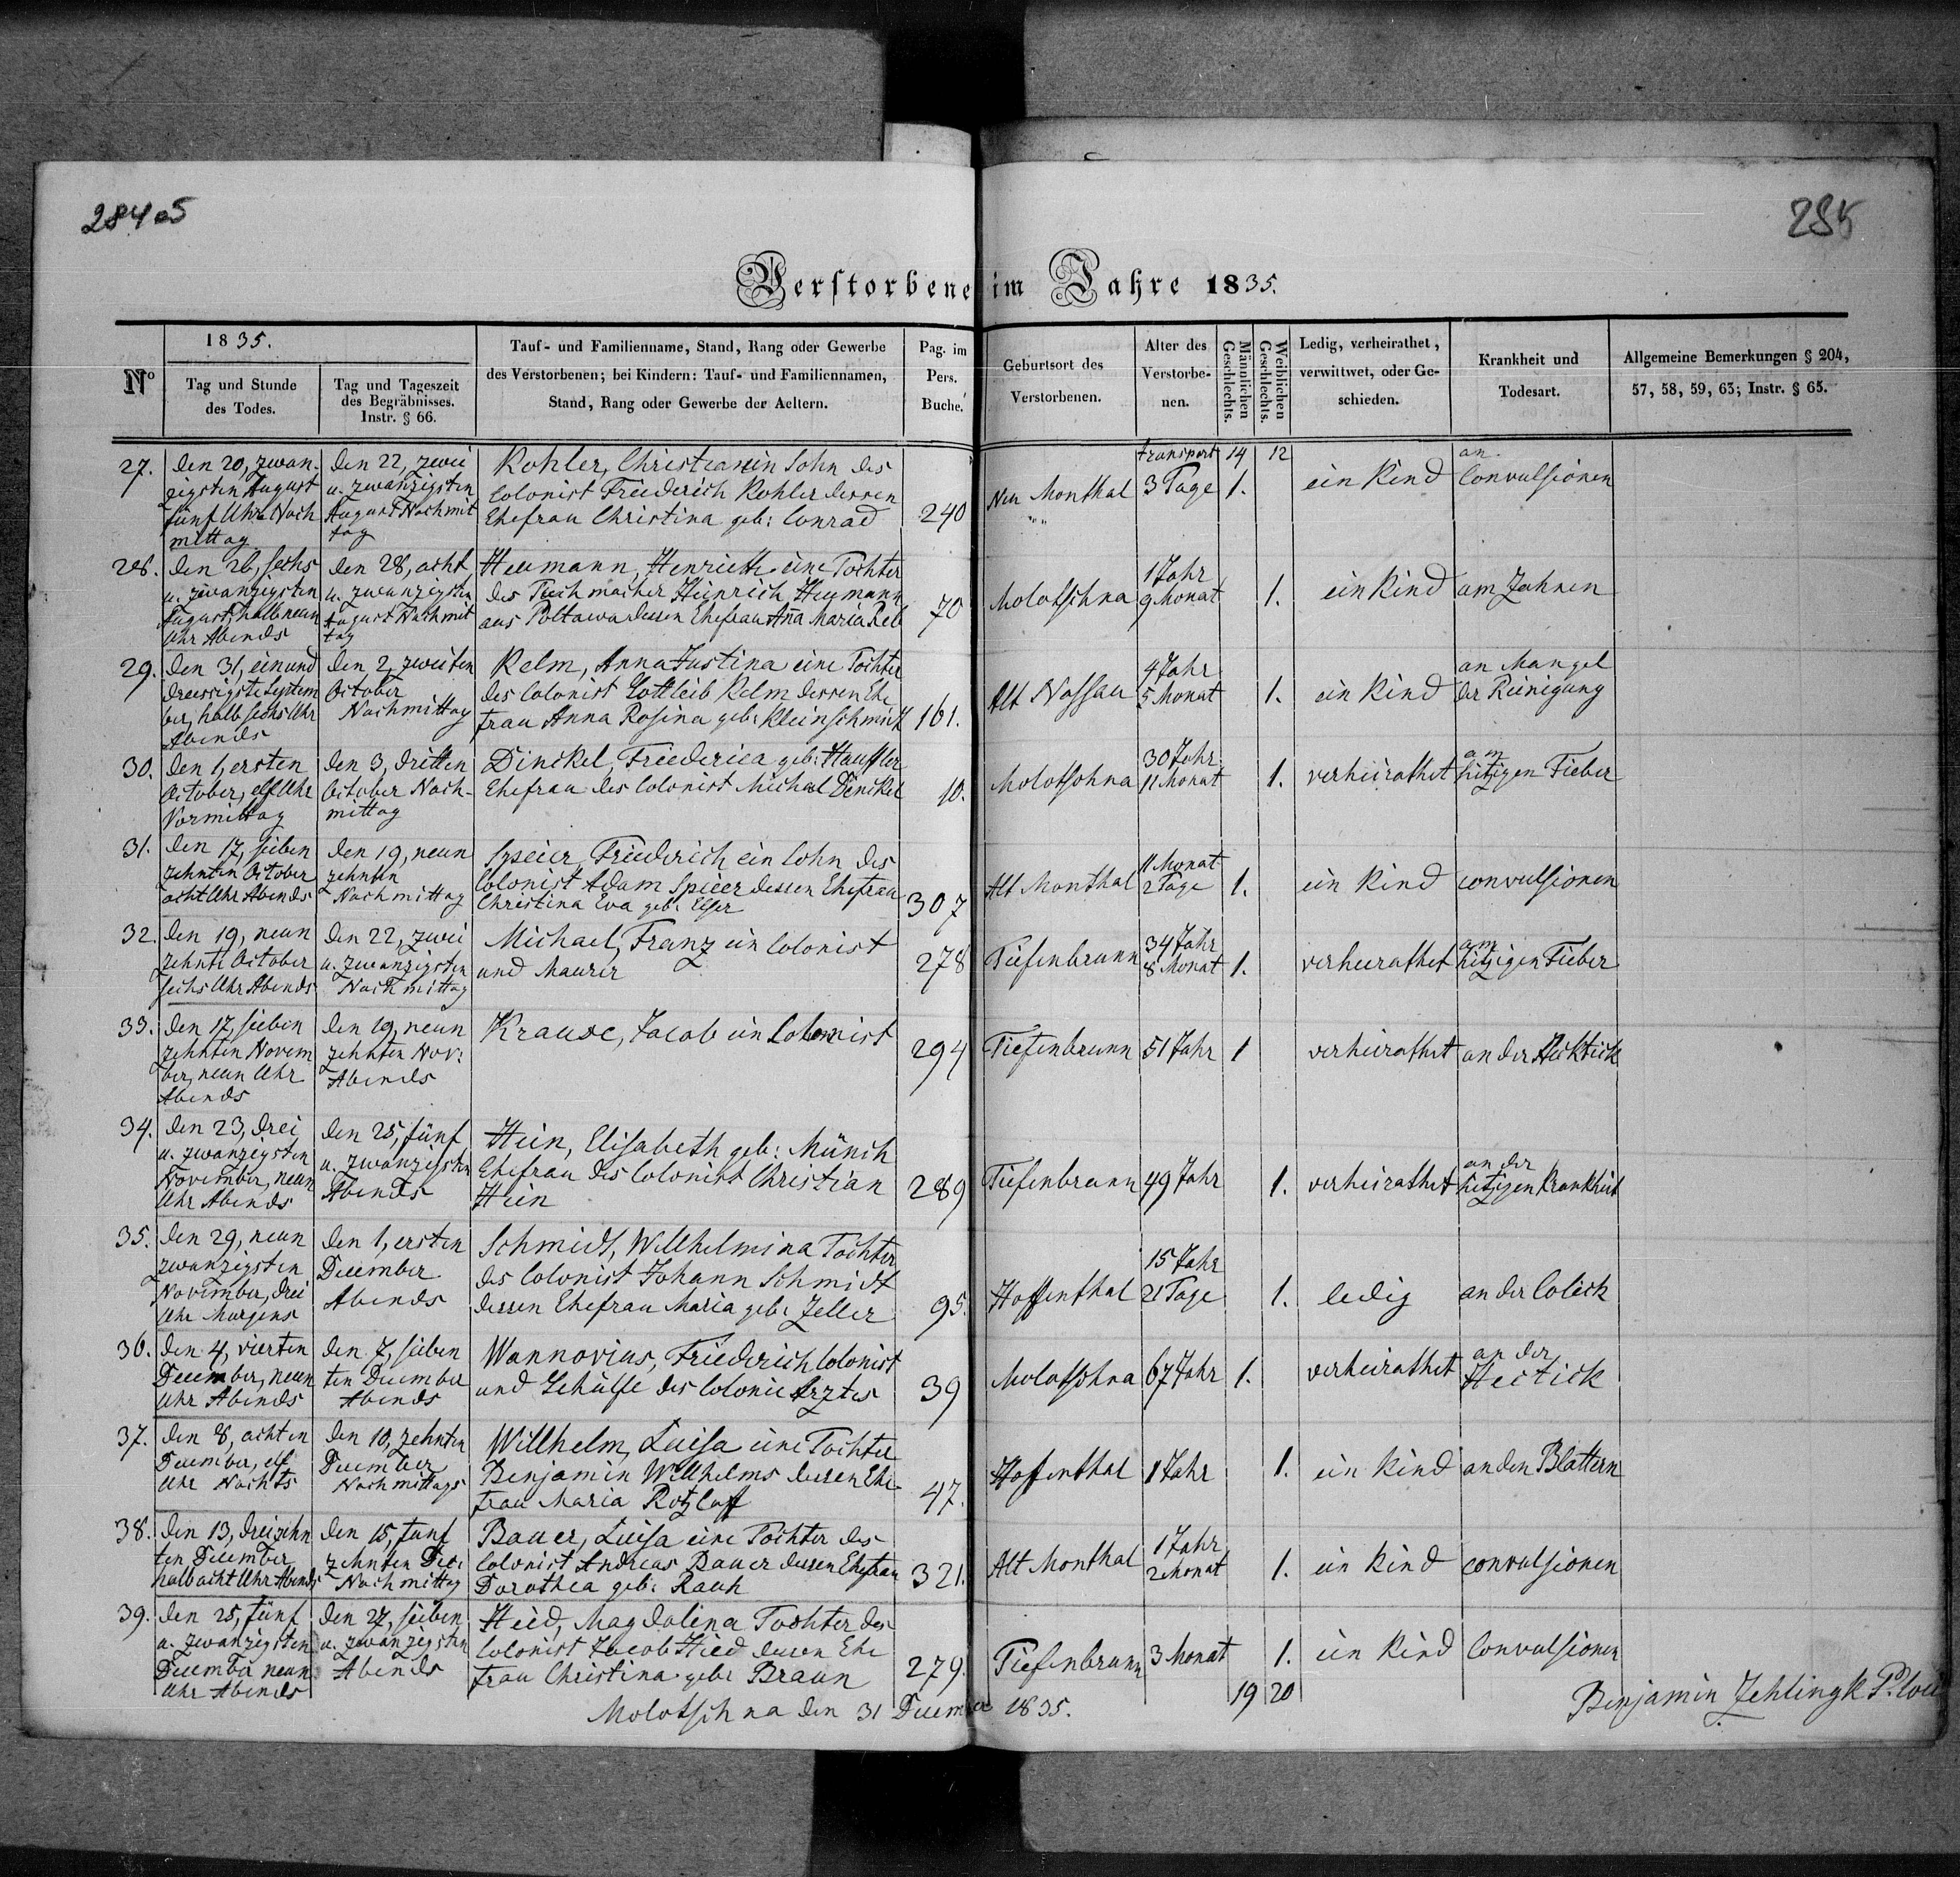 284 o5
285
Verstorbene im Jahre 1835.
No
1835.
Tag und Stunde
des Todes.
Tag und Tageszeit
des Begräbnisses.
Instr. § 66.
Tauf- und Familienname, Stand, Rang oder Gewerbe
des Verstorbenen; bei Kindern: Tauf- und Familiennamen,
Stand, Rang oder Gewerbe der Aeltern.
Pag. im
Pers.
Buche.
Geburtsort des
Verstorbenen.
Alter des
Verstorbe-
nen.
Männlichen
Geschlechts.
Weiblichen
Geschlechts.
Ledig, verheirathet,
verwittwet, oder Ge-
schieden.
Krankheit und
Todesart.
Allgemeine Bemerkungen § 204,
57, 58, 59, 63; Instr. § 65.
transport 14 12
27.
den 20, zwan-
zigsten August
fünf Uhr Nach
mittag
den 22, zwei
u. zwanzigsten
August Nachmit
tag
Kohler, Christian ein Sohn des
Colonist Friederich Kohler dessen
Ehefrau Christina geb: Conrad
240
Neu Monthal
3 Tage
1.
ein Kind
an
Convulsionen
28.
den 26, sechs
u. zwanzigsten
August, halb neun
Uhr Abends
den 28, acht
u. zwanzigsten
August Nachmit
tag
Heumann, Henriette eine Tochter
des Tuchmacher Heinrich Heumann
aus Poltawa dessen Ehefrau Anna Maria Reb
70
Molotschna
1 Jahr
9 Monat
1.
ein Kind
am Zahnen
29.
den 31, einund
dreissigste Septem
ber, halb sechs Uhr
Abends
den 2, zweiten
October
Nachmittag
Relm, Anna Justina eine Tochter
des Colonist Gottleib Relm dessen Ehe
frau Anna Rosina geb: Kleinschmidt
161.
Alt Nassau
4 Jahr
5 Monat
1.
ein Kind
an Mangel
der Reinigung
30.
den 1, ersten
October, elf Uhr
Vormittag
den 3, dritten
October Nach-
mittag
Dinckel, Friederica geb: Hauffler
Ehefrau des Colonist Michael Dinckel
10.
Molotschna
30 Jahr
11 Monat
1.
verheirathet
am
hitzigen Fieber
31.
den 17, sieben
zehnten October
acht Uhr Abends
den 19, neun
zehnten
Nachmittag
Speier, Friederich ein Sohn des
Colonist Adam Speier dessen Ehefrau
Christina Eva geb: Elser
307
Alt Monthal
11 Monat
2 Tage
1.
ein Kind
convulsionen
32.
den 19, neun
zehnte October
sechs Uhr Abends
den 22, zwei
u. zwanzigsten
Nachmittag
Michael, Franz ein Colonist
und Maurer
278
Tiefenbrunn
34 Jahr
8 Monat
1.
verheirathet
am
hitzigen Fieber
33.
den 17, sieben
zehnten Novem
ber, neun Uhr
Abends
den 19, neun
zehnten Nov:
Abends
Krause, Jacob ein Colonist
294
Tiefenbrunn
51 Jahr
1
verheirathet
an der Hecktick
34.
den 23, drei
u. zwanzigsten
November, neun
Uhr Abends
den 25, fünf
u. zwanzigsten
Abends
Hein, Elisabeth geb: Münch
Ehefrau des Colonist Christian
Hein
289
Tiefenbrunn
49 Jahr
1.
verheirathet
an der
hitzigen Krankheit
35.
den 29, neun
zwanzigsten
November, drei
Uhr Morgens
den 1, ersten
December
Abends
Schmidt, Willhelmina Tochter
des Colonist Johann Schmidt
dessen Ehefrau Maria geb: Zeller
95.
Hoffenthal
15 Jahr
21 Tage
1.
ledig
an der Colick
36.
den 4, vierten
December, neun
Uhr Abends
den 7, sieben
ten December
Abends
Wannovius, Friederich Colonist
und Gehülfe des Colonie Arztes
39
Molotschna
67 Jahr
1.
verheirathet
an der
Hectick
37.
den 8, achten
December, elf
Uhr Nachts
den 10, zehnten
December
Nachmittags
Willhelm, Luisa eine Tochter
Benjamin Willhelms dessen Ehe-
frau Maria Rotzlaff
47.
Hoffenthal
1 Jahr
1.
ein Kind
an den Blattern
38.
den 13, dreizehn
ten December
halb acht Uhr Abends
den 15, funf
zehnten Dec:
Nachmittag
Bauer, Luisa eine Tochter des
Colonist Andreas Bauer dessen Ehefrau
Dorothea geb: Rauh
321.
Alt Monthal
1 Jahr
2 Monat
1.
ein Kind
convulsionen
39.
den 25, fünf
u. zwanzigsten
December neun
Uhr Abends
den 27, sieben
u. zwanzigsten
Abends
Heid, Magdalena Tochter des
Colonist Jacob Hied dessen Ehe
frau Christina geb: Braun
279.
Tiefenbrunn
3 Monat
1.
ein Kind
Convulsionen
19 20
Molotschna den 31 December 1835.
Benjamin Zehlingk P.